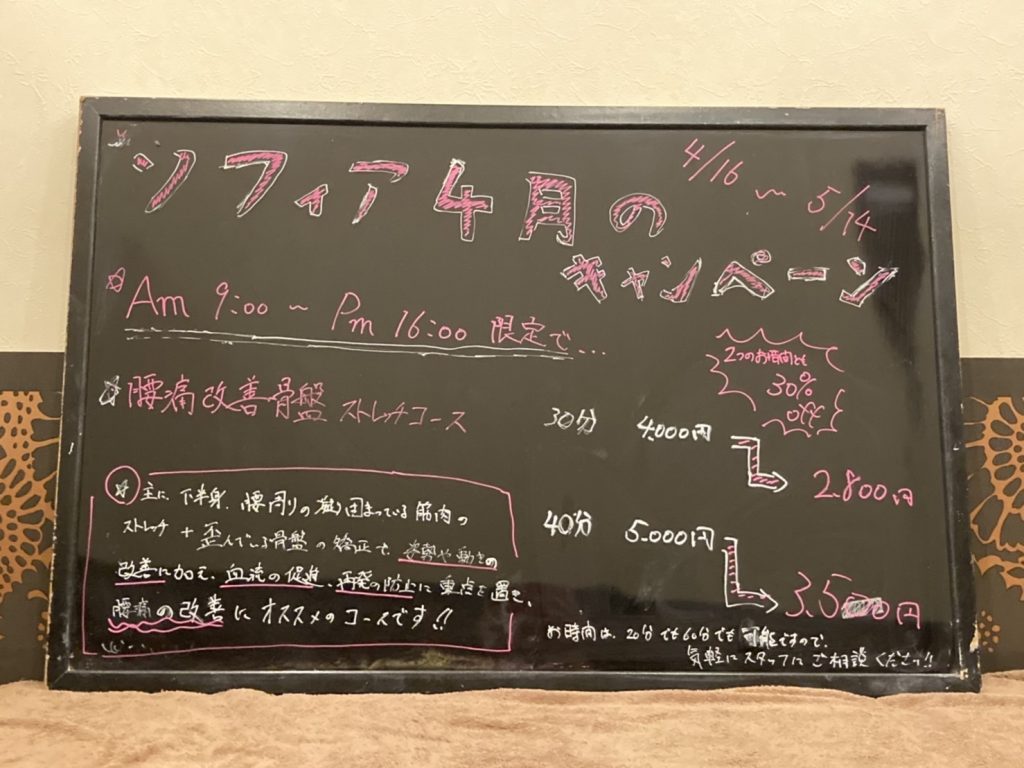 ソフィア4月の
キャンペーン
4/16 ~ 5/14
☆ Am 9:00 ~ Pm 16:00 限定で…
2つのお時間とも
30%
off
☆ 腰痛改善骨盤 ストレッチコース
30分 4.000円 → 2.800円
40分 5.000円 → 3.500円
☆ 主に、下半身、腰周りの 固まっている筋肉の
ストレッチ + 歪んでいる骨盤の矯正で、姿勢や動きの
改善に加え、血流の促進、再発の防止に重点を置き、
腰痛の改善にオススメのコースです!!
お時間は、20分でも60分でも可能ですので、
気軽にスタッフにご相談ください!!